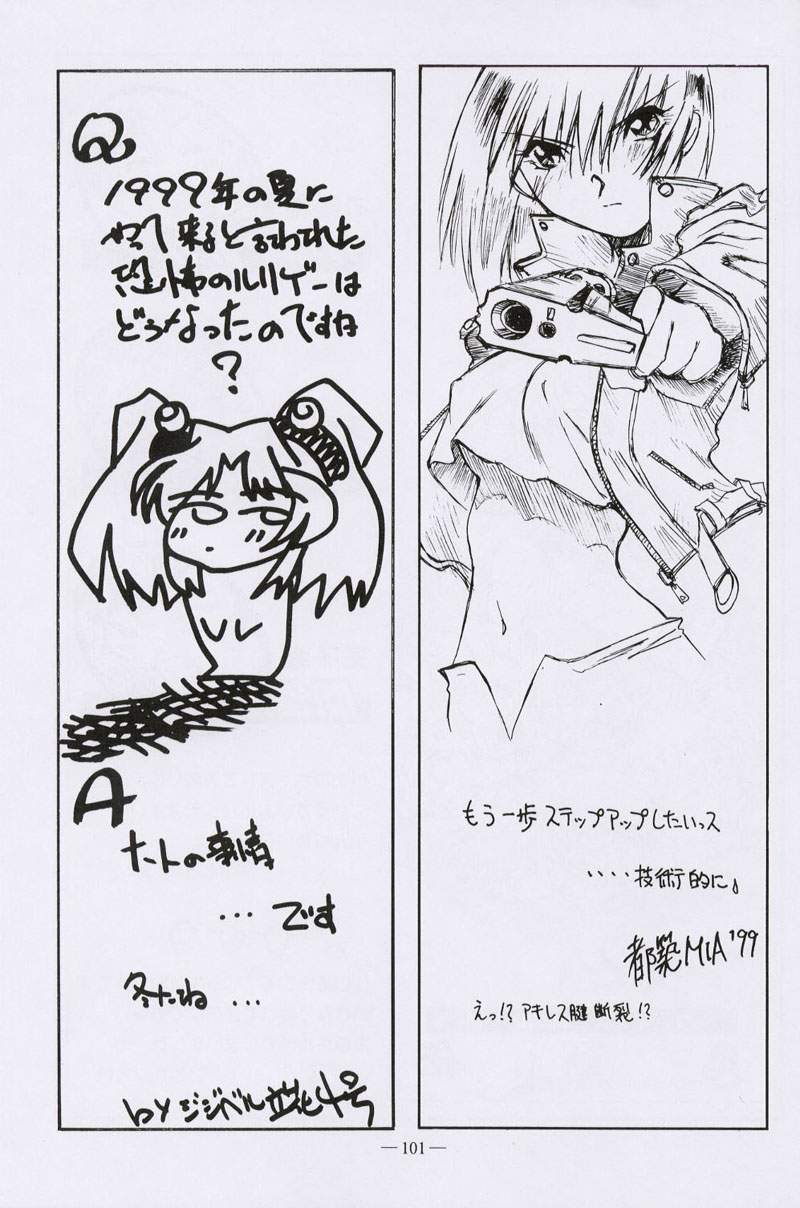 もう一歩 ステップアップしたいっス
‥‥技術的に。
都築MIA '99
えっ!? アキレス腱断裂!?
Q
1999年の夏に
やって来ると言われた
恐怖のルリゲーは
どうなったのですね
?
A
の事情
…です
冬だね…
by ジジベル
—101—